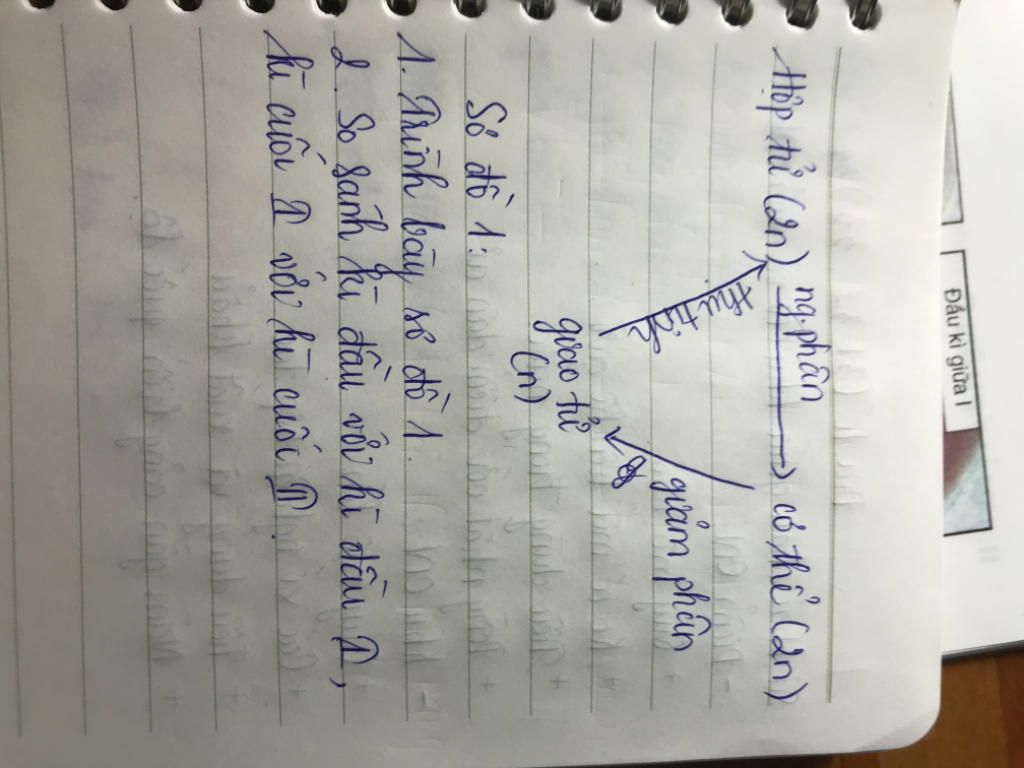 Hợp tử (2n) ng.phân cơ thể (2n)
thụ tinh
giảm phân
giao tử
(n)
Sơ đồ 1:
1. Trình bày sơ đồ 1.
2. So sánh kì đầu với kì đầu I,
kì cuối I với kì cuối II.
Đầu kì giữa I